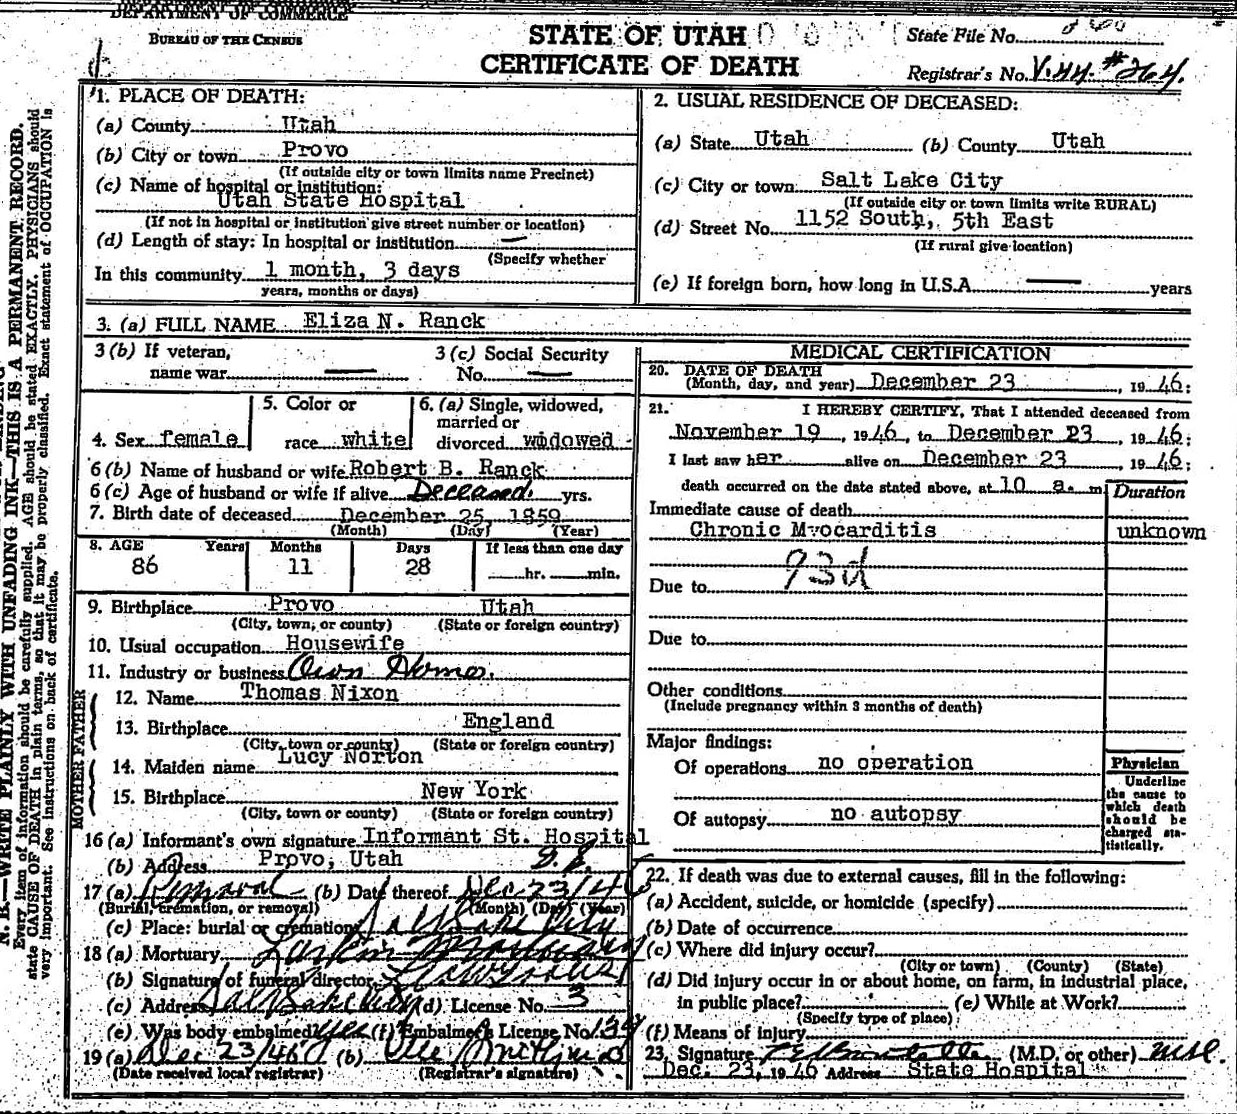 DEPARTMENT OF COMMERCE
BUREAU OF THE CENSUS
STATE OF UTAH
CERTIFICATE OF DEATH
State File No.
Registrar's No. V.44. #264.
N. B.—WRITE PLAINLY WITH UNFADING INK—THIS IS A PERMANENT RECORD.
Every item of information should be carefully supplied. AGE should be stated EXACTLY. PHYSICIANS should
state CAUSE OF DEATH in plain terms, so that it may be properly classified. Exact statement of OCCUPATION is
very important. See instructions on back of certificate.
1. PLACE OF DEATH:
(a) County Utah
(b) City or town Provo
(If outside city or town limits name Precinct)
(c) Name of hospital or institution:
Utah State Hospital
(If not in hospital or institution give street number or location)
(d) Length of stay: In hospital or institution —
(Specify whether
In this community 1 month, 3 days
years, months or days)
2. USUAL RESIDENCE OF DECEASED:
(a) State Utah (b) County Utah
(c) City or town Salt Lake City
(If outside city or town limits write RURAL)
(d) Street No. 1152 South, 5th East
(If rural give location)
(e) If foreign born, how long in U.S.A. — years
3. (a) FULL NAME Eliza N. Ranck
3 (b) If veteran,
name war —
3 (c) Social Security
No. —
4. Sex female
5. Color or
race white
6. (a) Single, widowed,
married or
divorced widowed
6 (b) Name of husband or wife Robert B. Ranck
6 (c) Age of husband or wife if alive Deceased. yrs.
7. Birth date of deceased December 25, 1859
(Month) (Day) (Year)
8. AGE Years Months Days If less than one day
86 11 28 hr. min.
9. Birthplace Provo Utah
(City, town, or county) (State or foreign country)
10. Usual occupation Housewife
11. Industry or business Own Home.
FATHER
12. Name Thomas Nixon
13. Birthplace England
(City, town or county) (State or foreign country)
MOTHER
14. Maiden name Lucy Norton
15. Birthplace New York
(City, town or county) (State or foreign country)
16 (a) Informant's own signature Informant St. Hospital
(b) Address Provo, Utah
17 (a) Removal (b) Date thereof Dec 23/46
(Burial, cremation, or removal) (Month) (Day) (Year)
(c) Place: burial or cremation Salt Lake City
18 (a) Mortuary Larkin Mortuary
(b) Signature of funeral director
(c) Address Salt Lake City (d) License No. 3
(e) Was body embalmed? yes (f) Embalmer's License No. 139
19 (a) Dec 23/46 (b)
(Date received local registrar) (Registrar's signature)
MEDICAL CERTIFICATION
20. DATE OF DEATH
(Month, day, and year) December 23, 1946:
21. I HEREBY CERTIFY, That I attended deceased from
November 19, 1946, to December 23, 1946:
I last saw her alive on December 23, 1946:
death occurred on the date stated above, at 10 a. m
Duration
Immediate cause of death
Chronic Myocarditis unknown
93d
Due to
Due to
Other conditions
(Include pregnancy within 3 months of death)
Major findings:
Of operations no operation
Of autopsy no autopsy
Physician
Underline
the cause to
which death
should be
charged sta-
tistically.
22. If death was due to external causes, fill in the following:
(a) Accident, suicide, or homicide (specify)
(b) Date of occurrence
(c) Where did injury occur?
(City or town) (County) (State)
(d) Did injury occur in or about home, on farm, in industrial place,
in public place? (e) While at Work?
(Specify type of place)
(f) Means of injury
23. Signature (M.D. or other)
Dec. 23, 1946 Address State Hospital